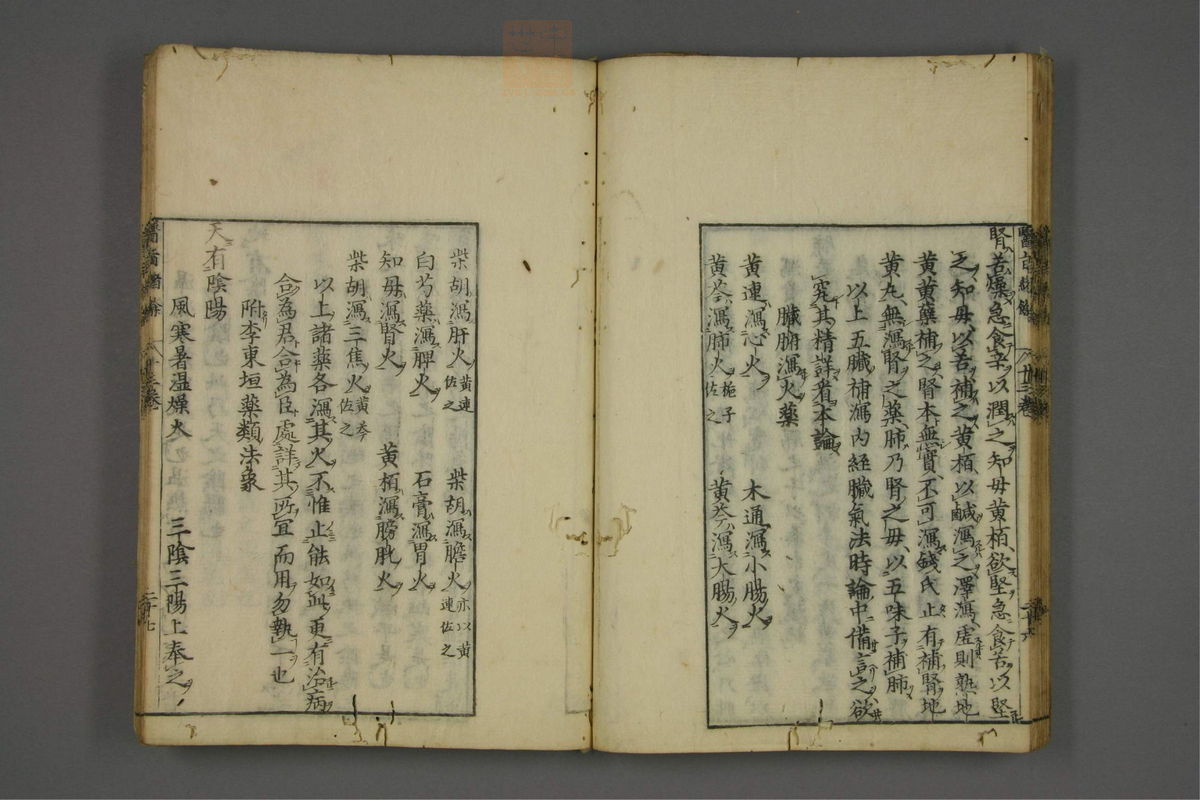 腎苦燥急食辛以潤之知母黄栢欲堅急食苦以堅
之知母以苦補之黄栢以鹹瀉之澤瀉虚則熟地
黄黄蘗補之腎本無實不可瀉錢氏止有補腎地
黄丸無瀉腎之薬肺乃腎之母以五味子補肺
以上五臓補瀉内経臓氣法時論中備言之欲
究其精詳者本論
臓腑瀉火薬
黄連瀉心火 木通瀉小腸火
黄芩瀉肺火 梔子佐之 黄芩瀉大腸火
柴胡瀉肝火 黄連佐之 柴胡瀉膽火 亦以黄連佐之
白芍薬瀉脾火 石膏瀉胃火
知母瀉腎火 黄栢瀉膀胱火
柴胡瀉三焦火 黄芩佐之
以上諸薬各瀉其火不惟止能如此更有治病
合為君合為臣處詳其所宜而用勿執一也
附李東垣薬類法象
天有陰陽
風寒暑温燥火 三陰三陽上奉之